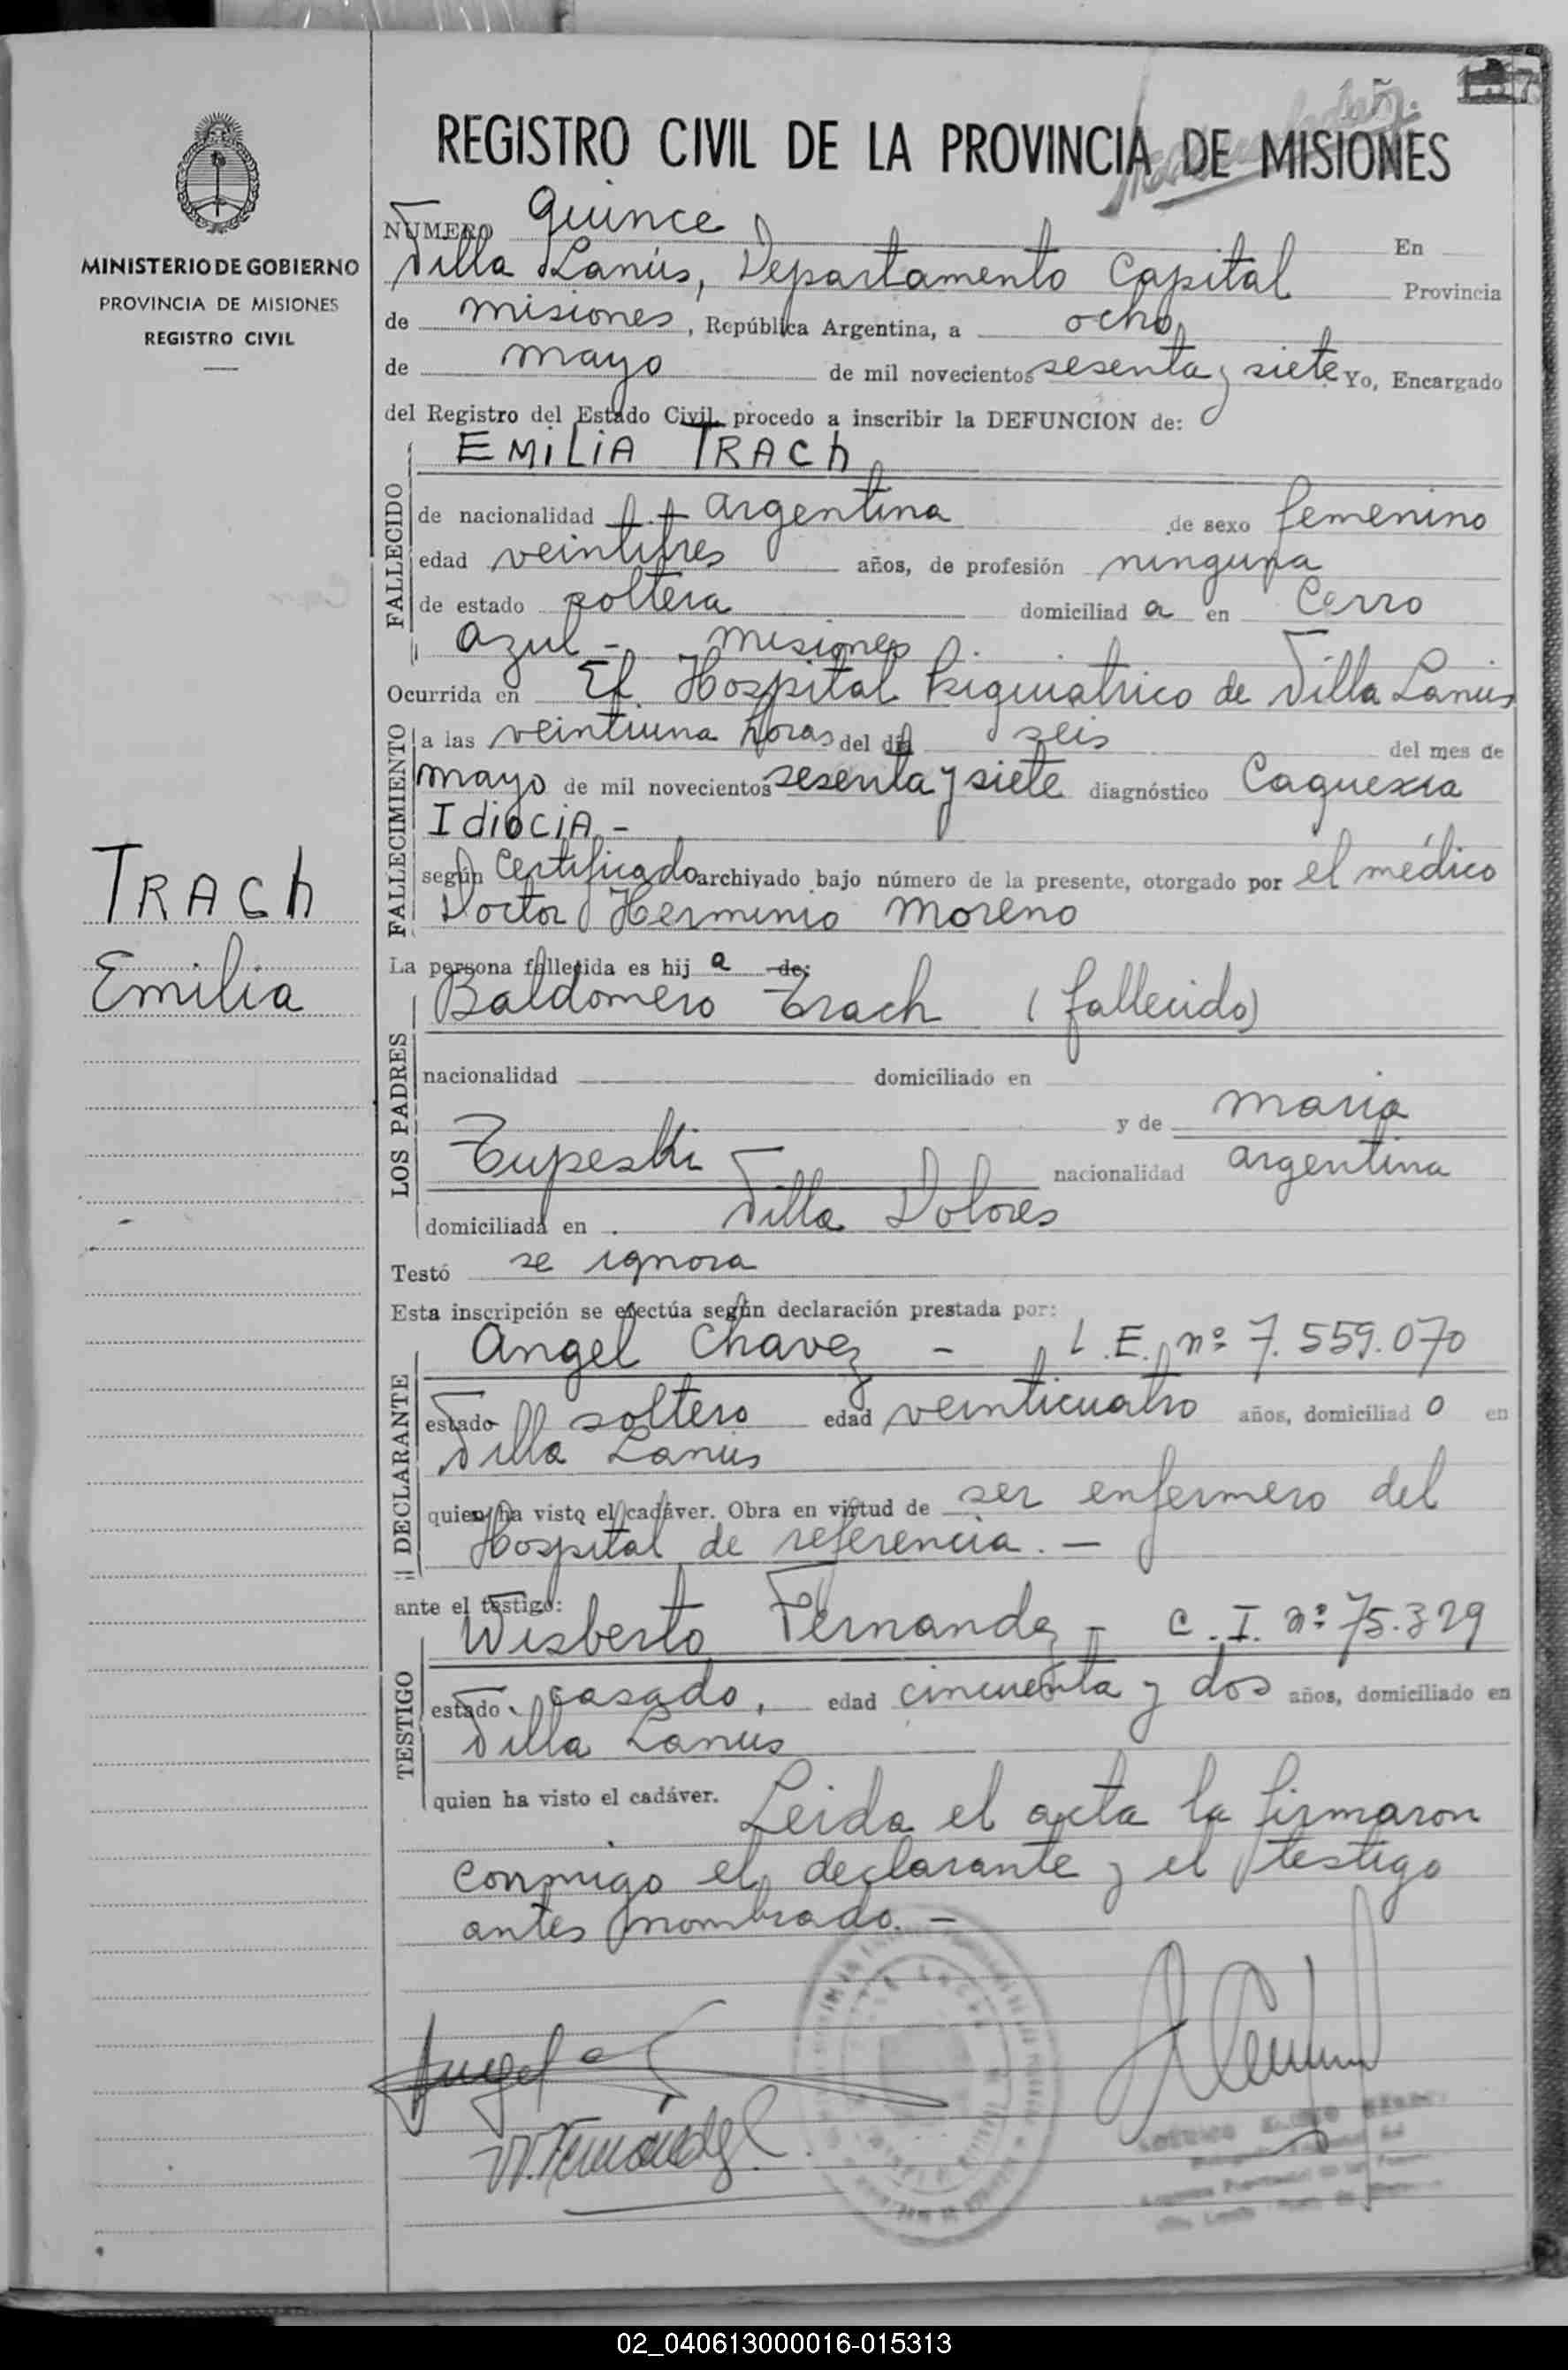 REGISTRO CIVIL DE LA PROVINCIA DE MISIONES
MINISTERIO DE GOBIERNO
PROVINCIA DE MISIONES
REGISTRO CIVIL
TRACh
Emilia
NUMERO Quince En
Villa Lanús, Departamento Capital Provincia
de misiones, República Argentina, a ocho
de mayo de mil novecientos sesenta y siete Yo, Encargado
del Registro del Estado Civil, procedo a inscribir la DEFUNCION de:
FALLECIDO
EMILIA TRACh
de nacionalidad argentina de sexo femenino
edad veintitres años, de profesión ninguna
de estado soltera domiciliad a en Cerro
Azul - misiones.
Ocurrida en El Hospital Psiquiatrico de Villa Lanús
FALLECIMIENTO
a las veintiuna horas del día seis del mes de
mayo de mil novecientos sesenta y siete diagnóstico Caquexia
IdiociA.-
según Certificado archivado bajo número de la presente, otorgado por el médico
Doctor Herminio Moreno
La persona fallecida es hij a de:
LOS PADRES
Baldomero Trach (fallecido)
nacionalidad domiciliado en
y de maria
Tupeski nacionalidad argentina
domiciliada en Villa Dolores
Testó se ignora
Esta inscripción se efectúa según declaración prestada por:
DECLARANTE
Angel Chavez - L.E. nº 7.559.070
estado soltero edad veinticuatro años, domiciliad o en
Villa Lanús
quien ha visto el cadáver. Obra en virtud de ser enfermero del
Hospital de referencia. -
ante el testigo:
TESTIGO
Wisberto Fernandez - C.I. nº 75.329
estado casado, edad cincuenta y dos años, domiciliado en
Villa Lanus
quien ha visto el cadáver. Leida el acta la firmaron
conmigo el declarante y el testigo
antes nombrado. -
Angel
W. Fernández
02_040613000016-015313